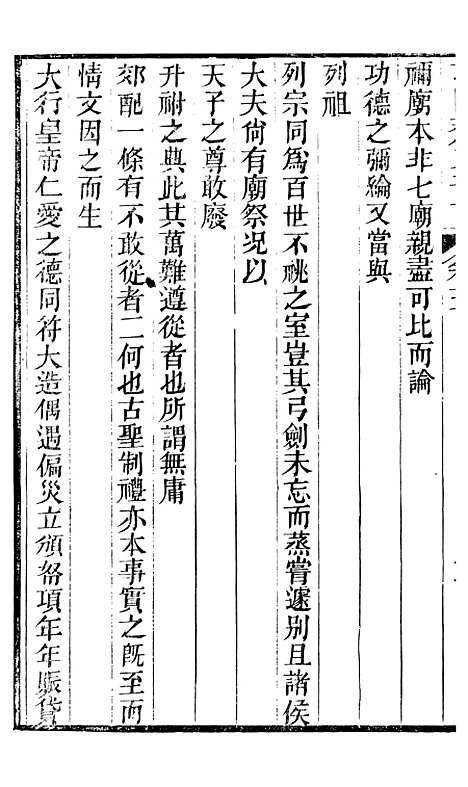 禰廟本非七廟親盡可比而論
功德之彌綸又當與
列祖
列宗同爲百世不祧之室豈其弓劍未忘而蒸嘗遽别且諸侯
大夫尙有廟祭况以
天子之尊敢廢
升祔之典此其萬難遵從者也所謂無庸
郊配一條有不敢從者二何也古聖制禮亦本事實之既至而
情文因之而生
大行皇帝仁愛之德同符大造偶遇偏災立頒帑項年年賑貸